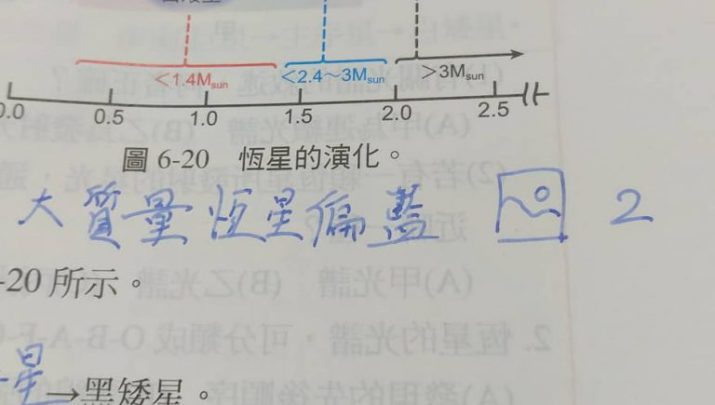 <1.4Msun <2.4~3Msun >3Msun
0.0 0.5 1.0 1.5 2.0 2.5
圖 6-20 恆星的演化。
大質量恆星偏藍 2
-20 所示。
星→黑矮星。